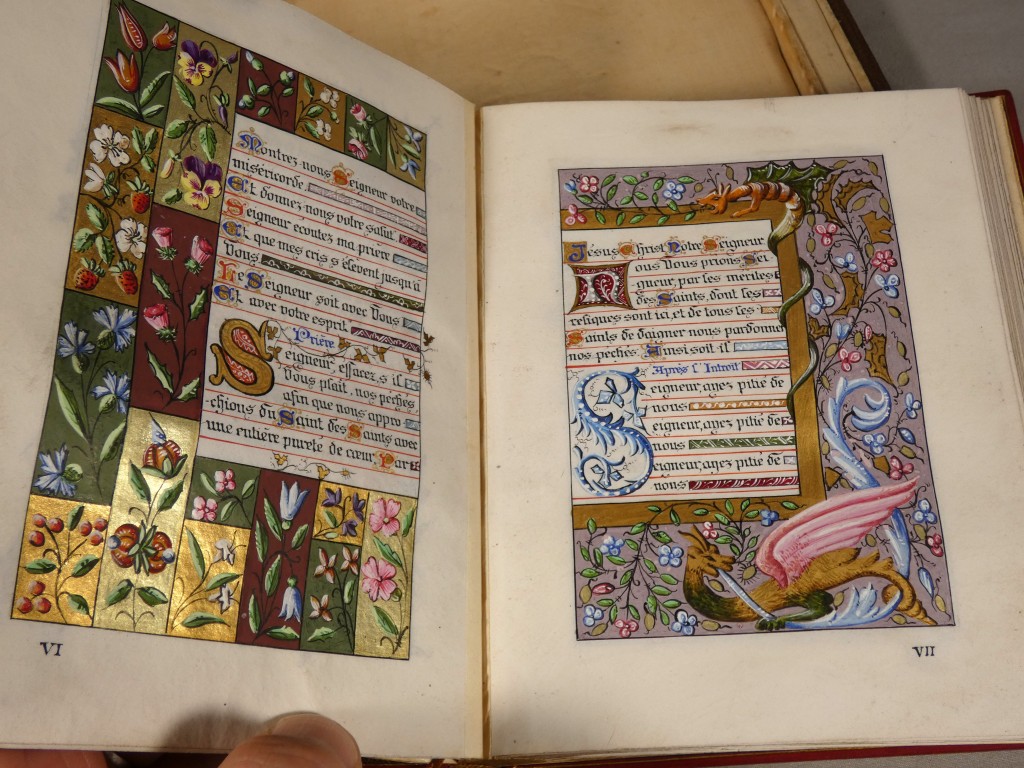 Montrez-nous Seigneur votre
miséricorde.
Et donnez-nous votre salut.
Seigneur écoutez ma prière
Et que mes cris s'élèvent jusqu'à
Vous
Le Seigneur soit avec Vous
Et avec votre esprit
Prière
Seigneur, effacez, s'il
Vous plaît, nos péchés
afin que nous appro
chions du Saint des Saints avec
une entière pureté de cœur. Par
VI
Jésus Christ Notre Seigneur
Nous Vous prions Sei
gneur, par les mérites
des Saints, dont les
reliques sont ici, et de tous les
Saints de daigner nous pardonner
nos péchés Ainsi soit il
Après l'Introït
Seigneur, ayez pitié de
nous
Seigneur, ayez pitié de
nous
Seigneur, ayez pitié de
nous
VII